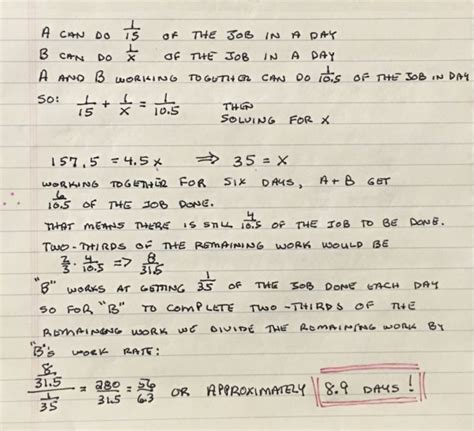 A CAN DO 1/15 OF THE JOB IN A DAY
B CAN DO 1/X OF THE JOB IN A DAY
A AND B WORKING TOGETHER CAN DO 1/10.5 OF THE JOB IN DAY
SO: 1/15 + 1/X = 1/10.5 THEN
SOLVING FOR X
157.5 = 4.5x ⇒ 35 = X
WORKING TOGETHER FOR SIX DAYS, A+B GET
6/10.5 OF THE JOB DONE.
THAT MEANS THERE IS STILL 4/10.5 OF THE JOB TO BE DONE.
TWO-THIRDS OF THE REMAINING WORK WOULD BE
2/3 · 4/10.5 => 8/31.5
"B" WORKS AT GETTING 1/35 OF THE JOB DONE EACH DAY
SO FOR "B" TO COMPLETE TWO-THIRDS OF THE
REMAINING WORK WE DIVIDE THE REMAINING WORK BY
"B"'s WORK RATE:
8/31.5 / 1/35 = 280/31.5 = 56/6.3 OR APPROXIMATELY 8.9 DAYS!